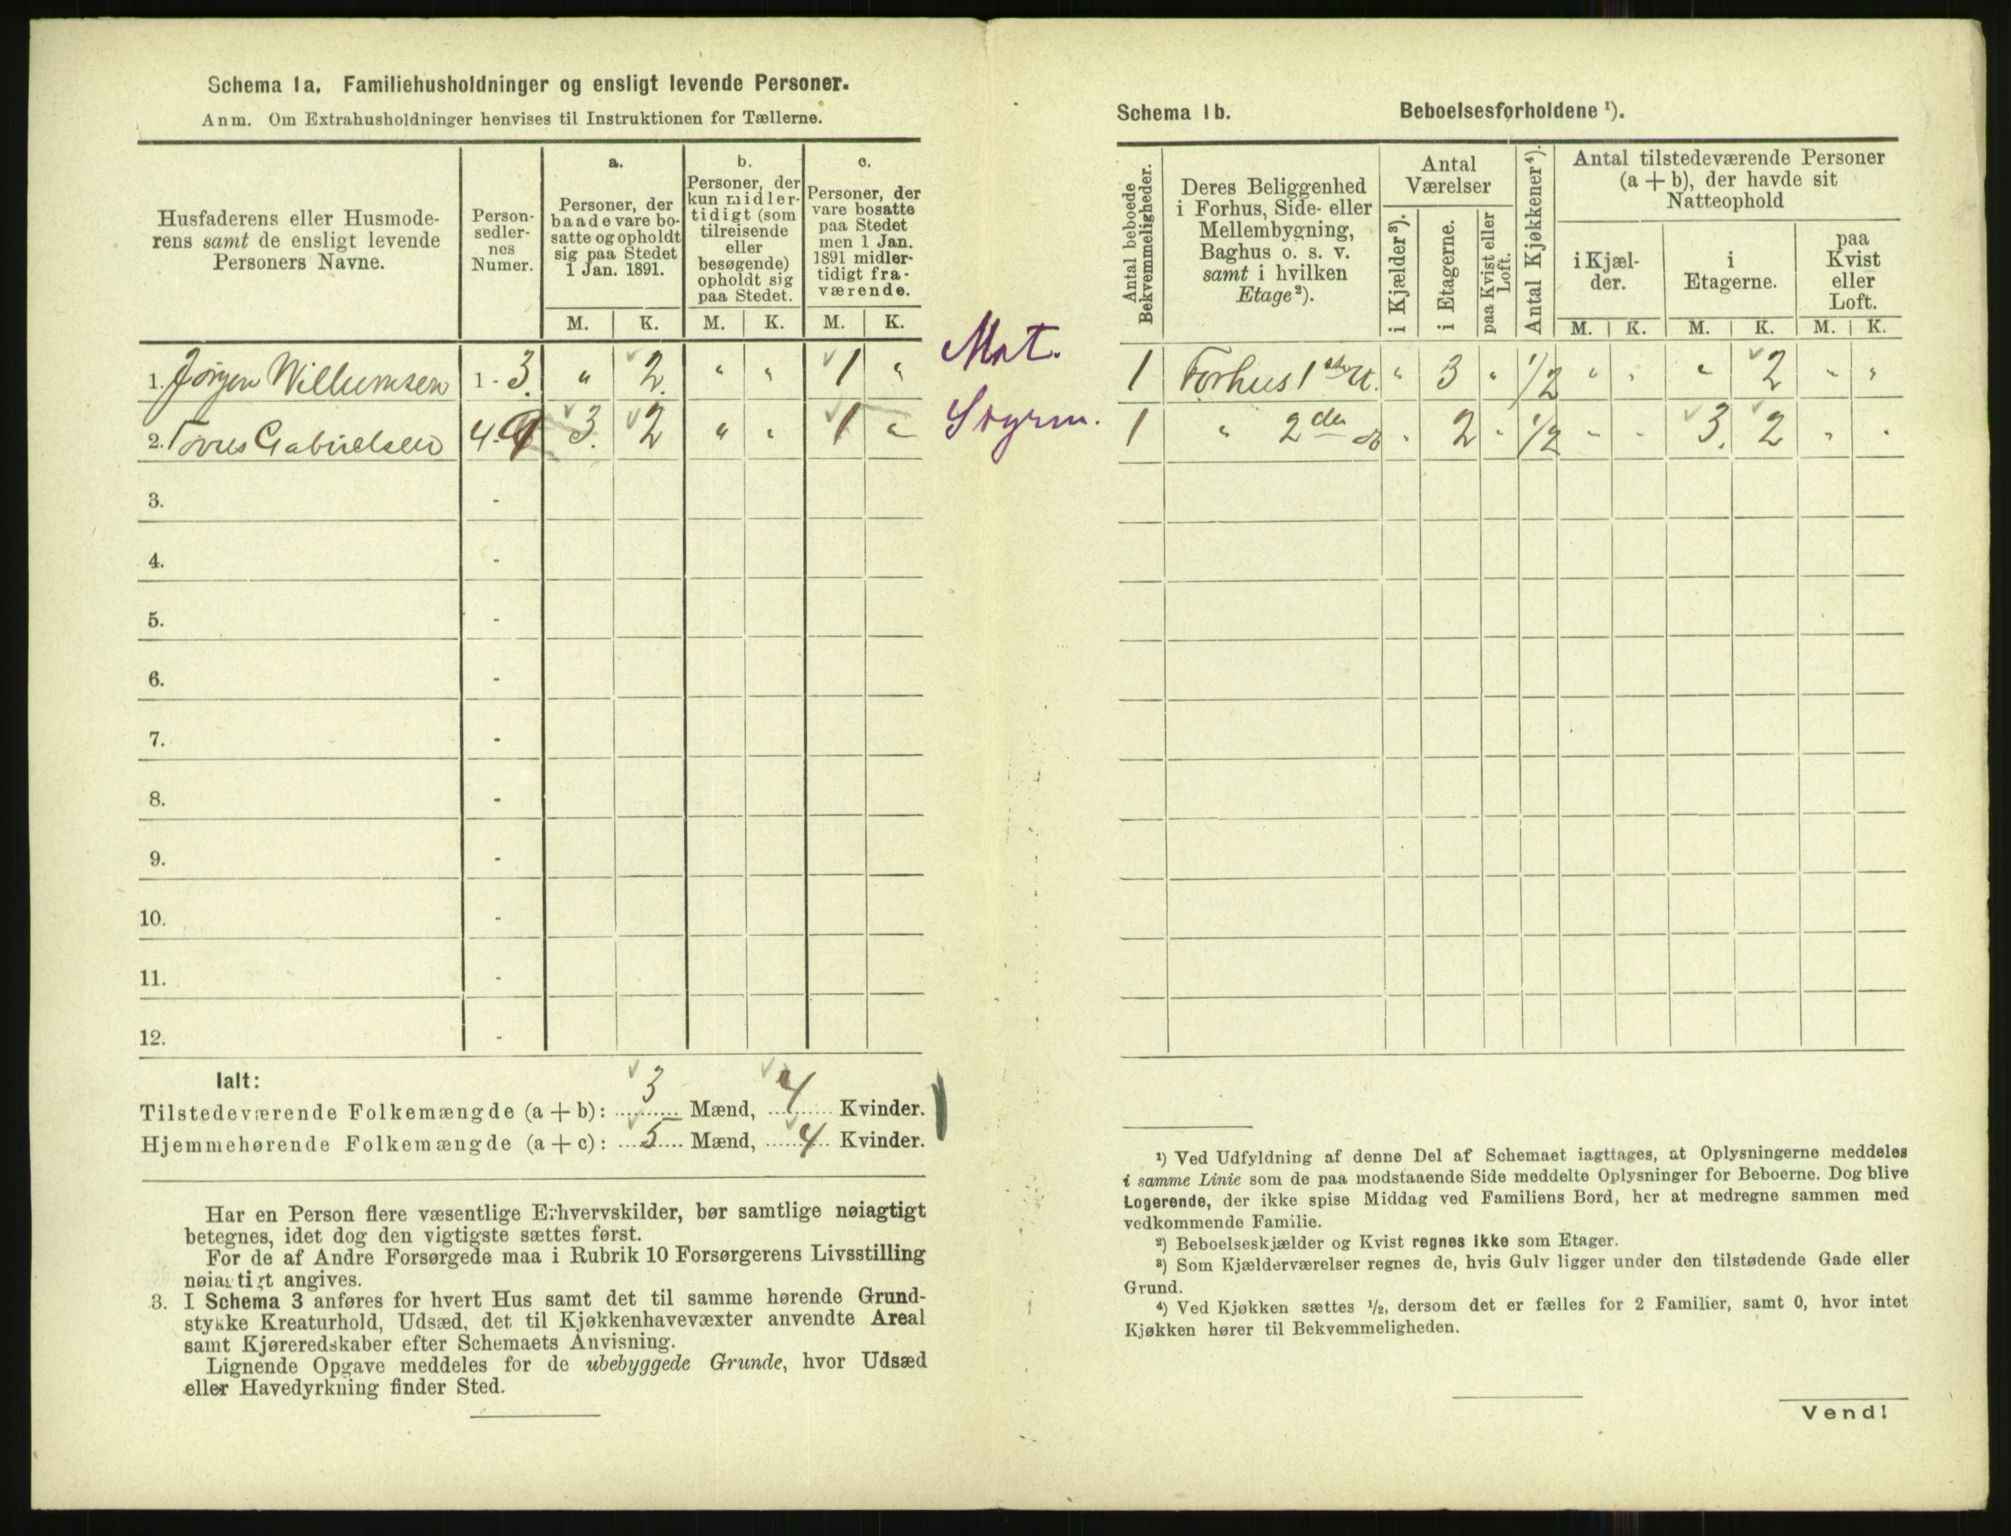 Schema 1a. Familiehusholdninger og ensligt levende Personer.
Anm. Om Extrahusholdninger henvises til Instruktionen for Tællerne.
Husfaderens eller Husmode-
rens samt de ensligt levende
Personers Navne.
Person-
sedler-
nes
Numer.
a.
Personer, der
baade vare bo-
satte og opholdt
sig paa Stedet
1 Jan. 1891.
b.
Personer, der
kun midler-
tidigt (som
tilreisende
eller
besøgende)
opholdt sig
paa Stedet.
c.
Personer, der
vare bosatte
paa Stedet
men 1 Jan.
1891 midler-
tidigt fra-
værende.
M. K. M. K. M. K.
1. Jørgen Willumsen 1 - 3. " 2. " " 1 "
2. Torres Gabrielsen 4 - 9 3. 2 " " 1 "
3. -
4. -
5. -
6. -
7. -
8. -
9. -
10. -
11. -
12. -
Ialt:
Tilstedeværende Folkemængde (a + b): 3 Mænd, 4 Kvinder.
Hjemmehørende Folkemængde (a + c): 5 Mænd, 4 Kvinder.
Har en Person flere væsentlige Erhvervskilder, bør samtlige nøiagtigt
betegnes, idet dog den vigtigste sættes først.
For de af Andre Forsørgede maa i Rubrik 10 Forsørgerens Livsstilling
nøiagtigt angives.
3. I Schema 3 anføres for hvert Hus samt det til samme hørende Grund-
stykke Kreaturhold, Udsæd, det til Kjøkkenhavevæxter anvendte Areal
samt Kjøreredskaber efter Schemaets Anvisning.
Lignende Opgave meddeles for de ubebyggede Grunde, hvor Udsæd
eller Havedyrkning finder Sted.
Mat.
Styrm.
Schema 1b. Beboelsesforholdene ¹).
Antal beboede
Bekvemmeligheder.
Deres Beliggenhed
i Forhus, Side- eller
Mellembygning,
Baghus o. s. v.
samt i hvilken
Etage²).
Antal
Værelser
i Kjælder³).
i Etagerne.
paa Kvist eller
Loft.
Antal Kjøkkener⁴).
Antal tilstedeværende Personer
(a + b), der havde sit
Natteophold
i Kjæl-
der.
i
Etagerne.
paa
Kvist
eller
Loft.
M. K. M. K. M. K.
1 Forhus 1ste Et. " 3 " 1/2 " " " 2 " "
1 " 2den do " 2 " 1/2 " " 3. 2 " "
¹) Ved Udfyldning af denne Del af Schemaet iagttages, at Oplysningerne meddeles
i samme Linie som de paa modstaaende Side meddelte Oplysninger for Beboerne. Dog blive
Logerende, der ikke spise Middag ved Familiens Bord, her at medregne sammen med
vedkommende Familie.
²) Beboelseskjælder og Kvist regnes ikke som Etager.
³) Som Kjælderværelser regnes de, hvis Gulv ligger under den tilstødende Gade eller
Grund.
⁴) Ved Kjøkken sættes ½, dersom det er fælles for 2 Familier, samt 0, hvor intet
Kjøkken hører til Bekvemmeligheden.
Vend!